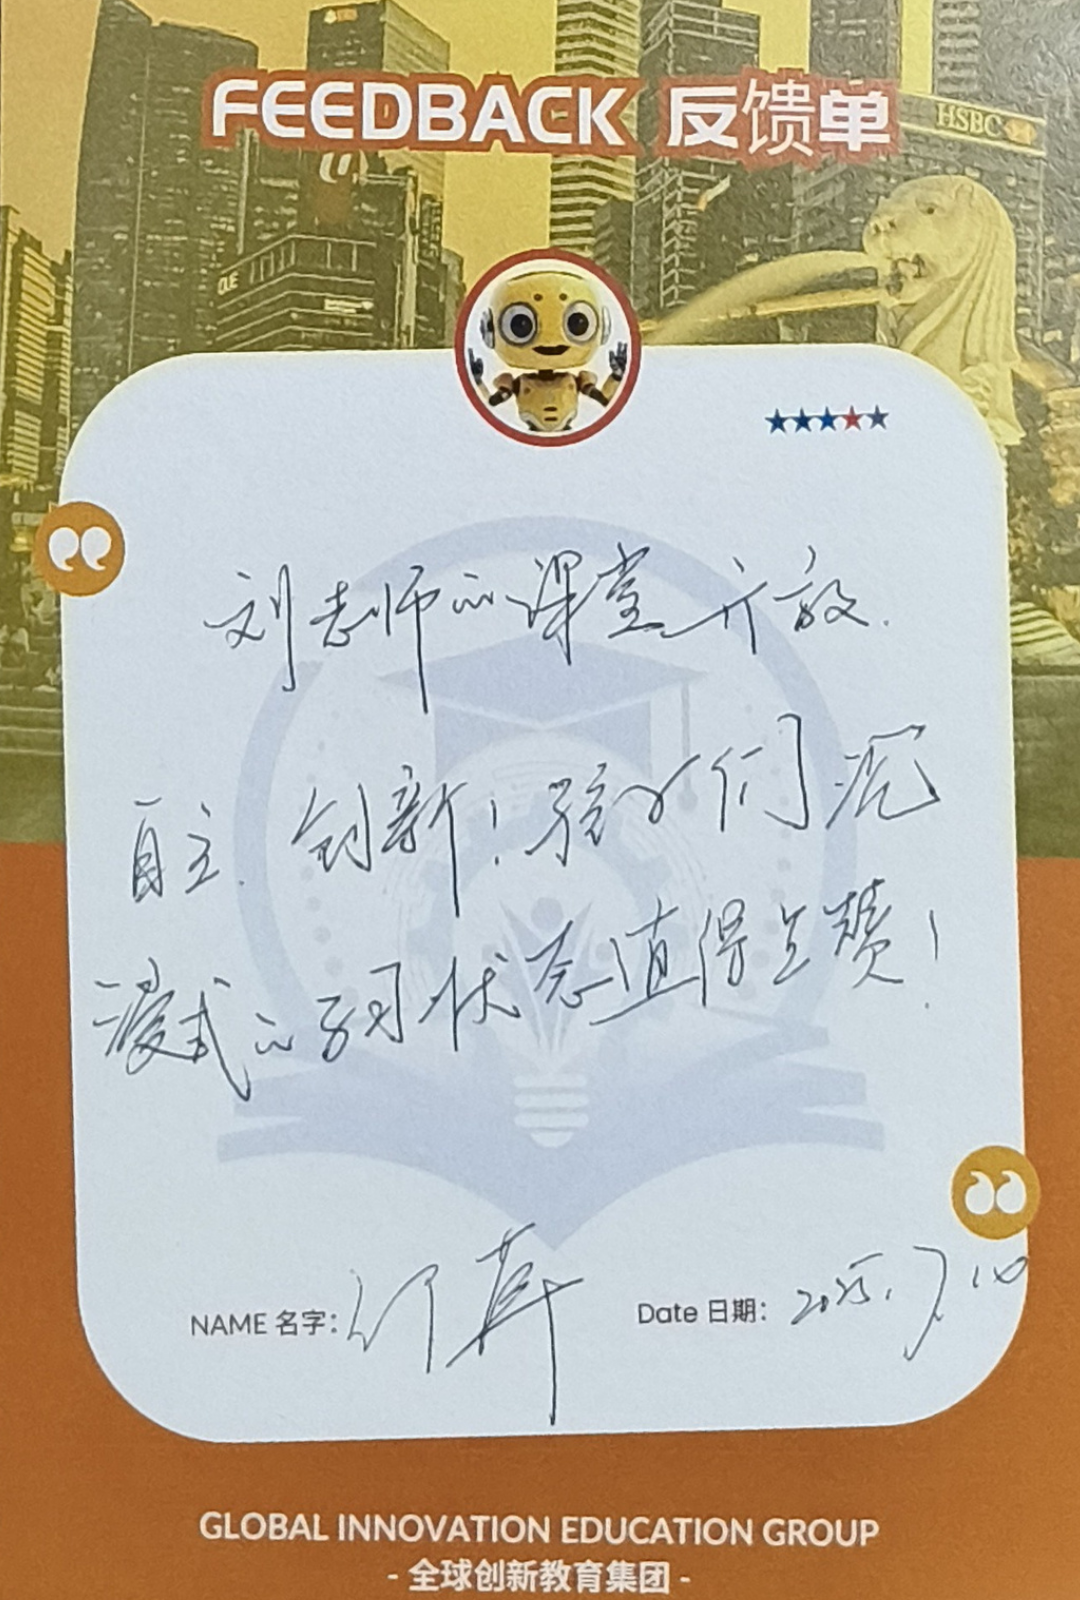 FEEDBACK 反馈单
HSBC
刘老师的课堂开放.
自主.创新!孩子们沉
浸式的学习状态值得点赞!
NAME 名字:
Date 日期: 2025.7.10
GLOBAL INNOVATION EDUCATION GROUP
- 全球创新教育集团 -